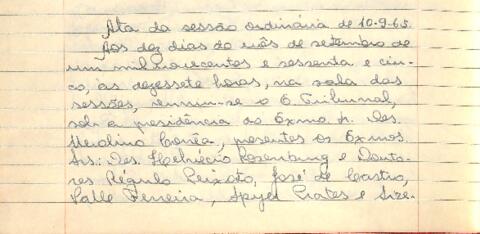 Ata da sessão ordinária de 10-9-65
Aos dez dias do mês de setembro de
um mil novecentos e sessenta e cin-
co, às dezessete horas, na sala das
sessões, reuniu-se o E. Tribunal,
sob a presidência do Exmo. Sr. Des.
Merolino Corrêa, presentes os Exmos.
Srs.: Des. Helvécio Rosenburg e Douto-
res Régulo Peixoto, José de Castro,
Valle Ferreira, Spyer Prates e Size-